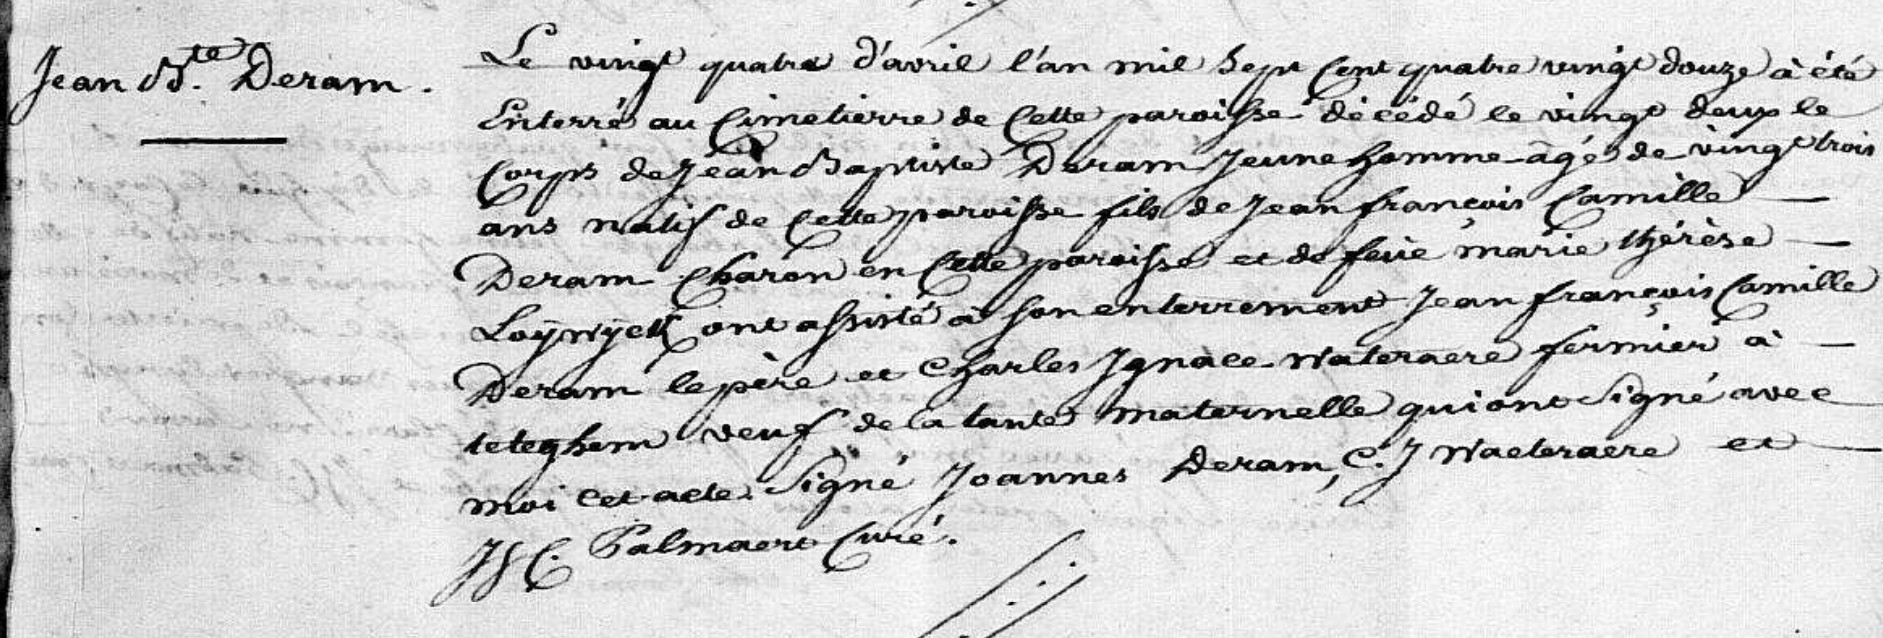 Jean B.te Deram.
Le vingt quatre d'avril l'an mil sept cent quatre vingt douze à été
Enterré au Cimetierre de Cette paroisse décédé le vingt deux le
Corps de Jean Baptiste Deram Jeune homme agé de vingt trois
ans natif de Cette paroisse fils de Jean françois Camille
Deram Charon en Cette paroisse et de feüe marie thérèse
Loÿwÿck ont assisté à son enterrement Jean françois Camille
Deram le père et Charles Ignace Wateraere fermier à
teteghem veuf de la tante maternelle qui ont signé avec
moi cet acte. Signé Joannes Deram, C. J Waeteraere et
Palmaert Curé.